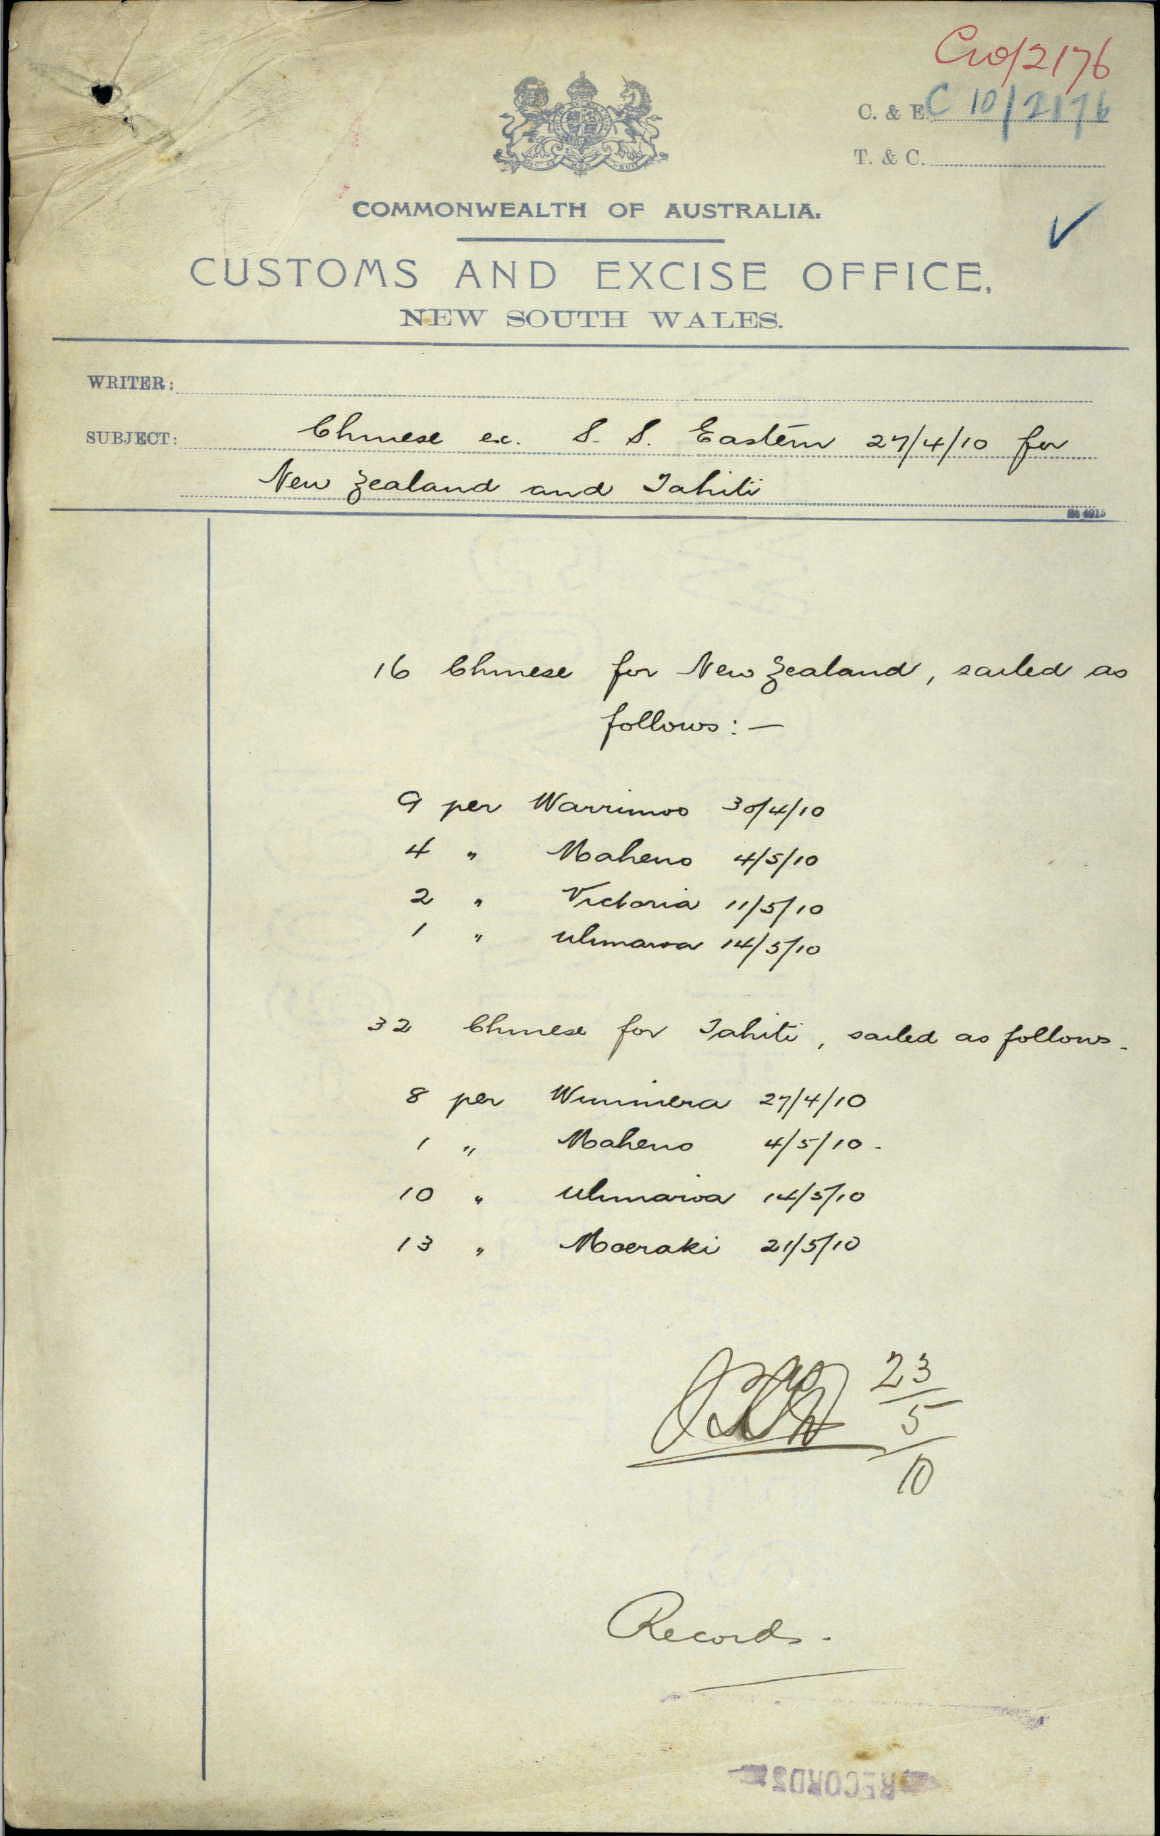 C10/2176
C. & E. C 10/2176
T. & C.
COMMONWEALTH OF AUSTRALIA.
CUSTOMS AND EXCISE OFFICE,
NEW SOUTH WALES.
WRITER:
SUBJECT: Chinese ex. S. S. Eastern 27/4/10 for
New Zealand and Tahiti
16 Chinese for New Zealand, sailed as
follows: —
9 per Warrimoo 30/4/10
4 " Maheno 4/5/10
2 " Victoria 11/5/10
1 " Ulimaroa 14/5/10
32 Chinese for Tahiti, sailed as follows.
8 per Wimmera 27/4/10
1 " Maheno 4/5/10.
10 " Ulimaroa 14/5/10
13 " Moeraki 21/5/10
23/5/10
Records.
RECORDS